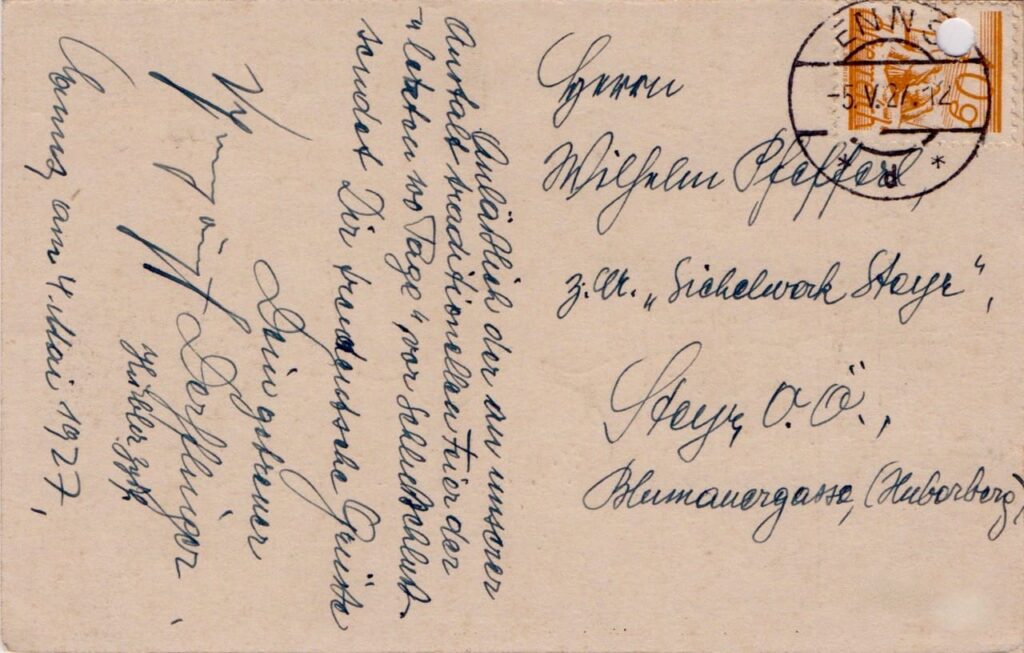 Anläßlich der an unserer
Anstalt traditionellen Feier der
„letzten 100 Tage“, vor Schulschluß,
sendet Dir treudeutsche Grüße
Dein getreuer
Derflinger
Enns, am 4. Mai 1927,
Herrn
Wilhelm Pfefferl,
z. Zt. „Sichelwerk Steyr“,
Steyr, O.Ö.,
Blumauergasse, (Huberberg)
ENNS
-5.V.27.12
* *
60